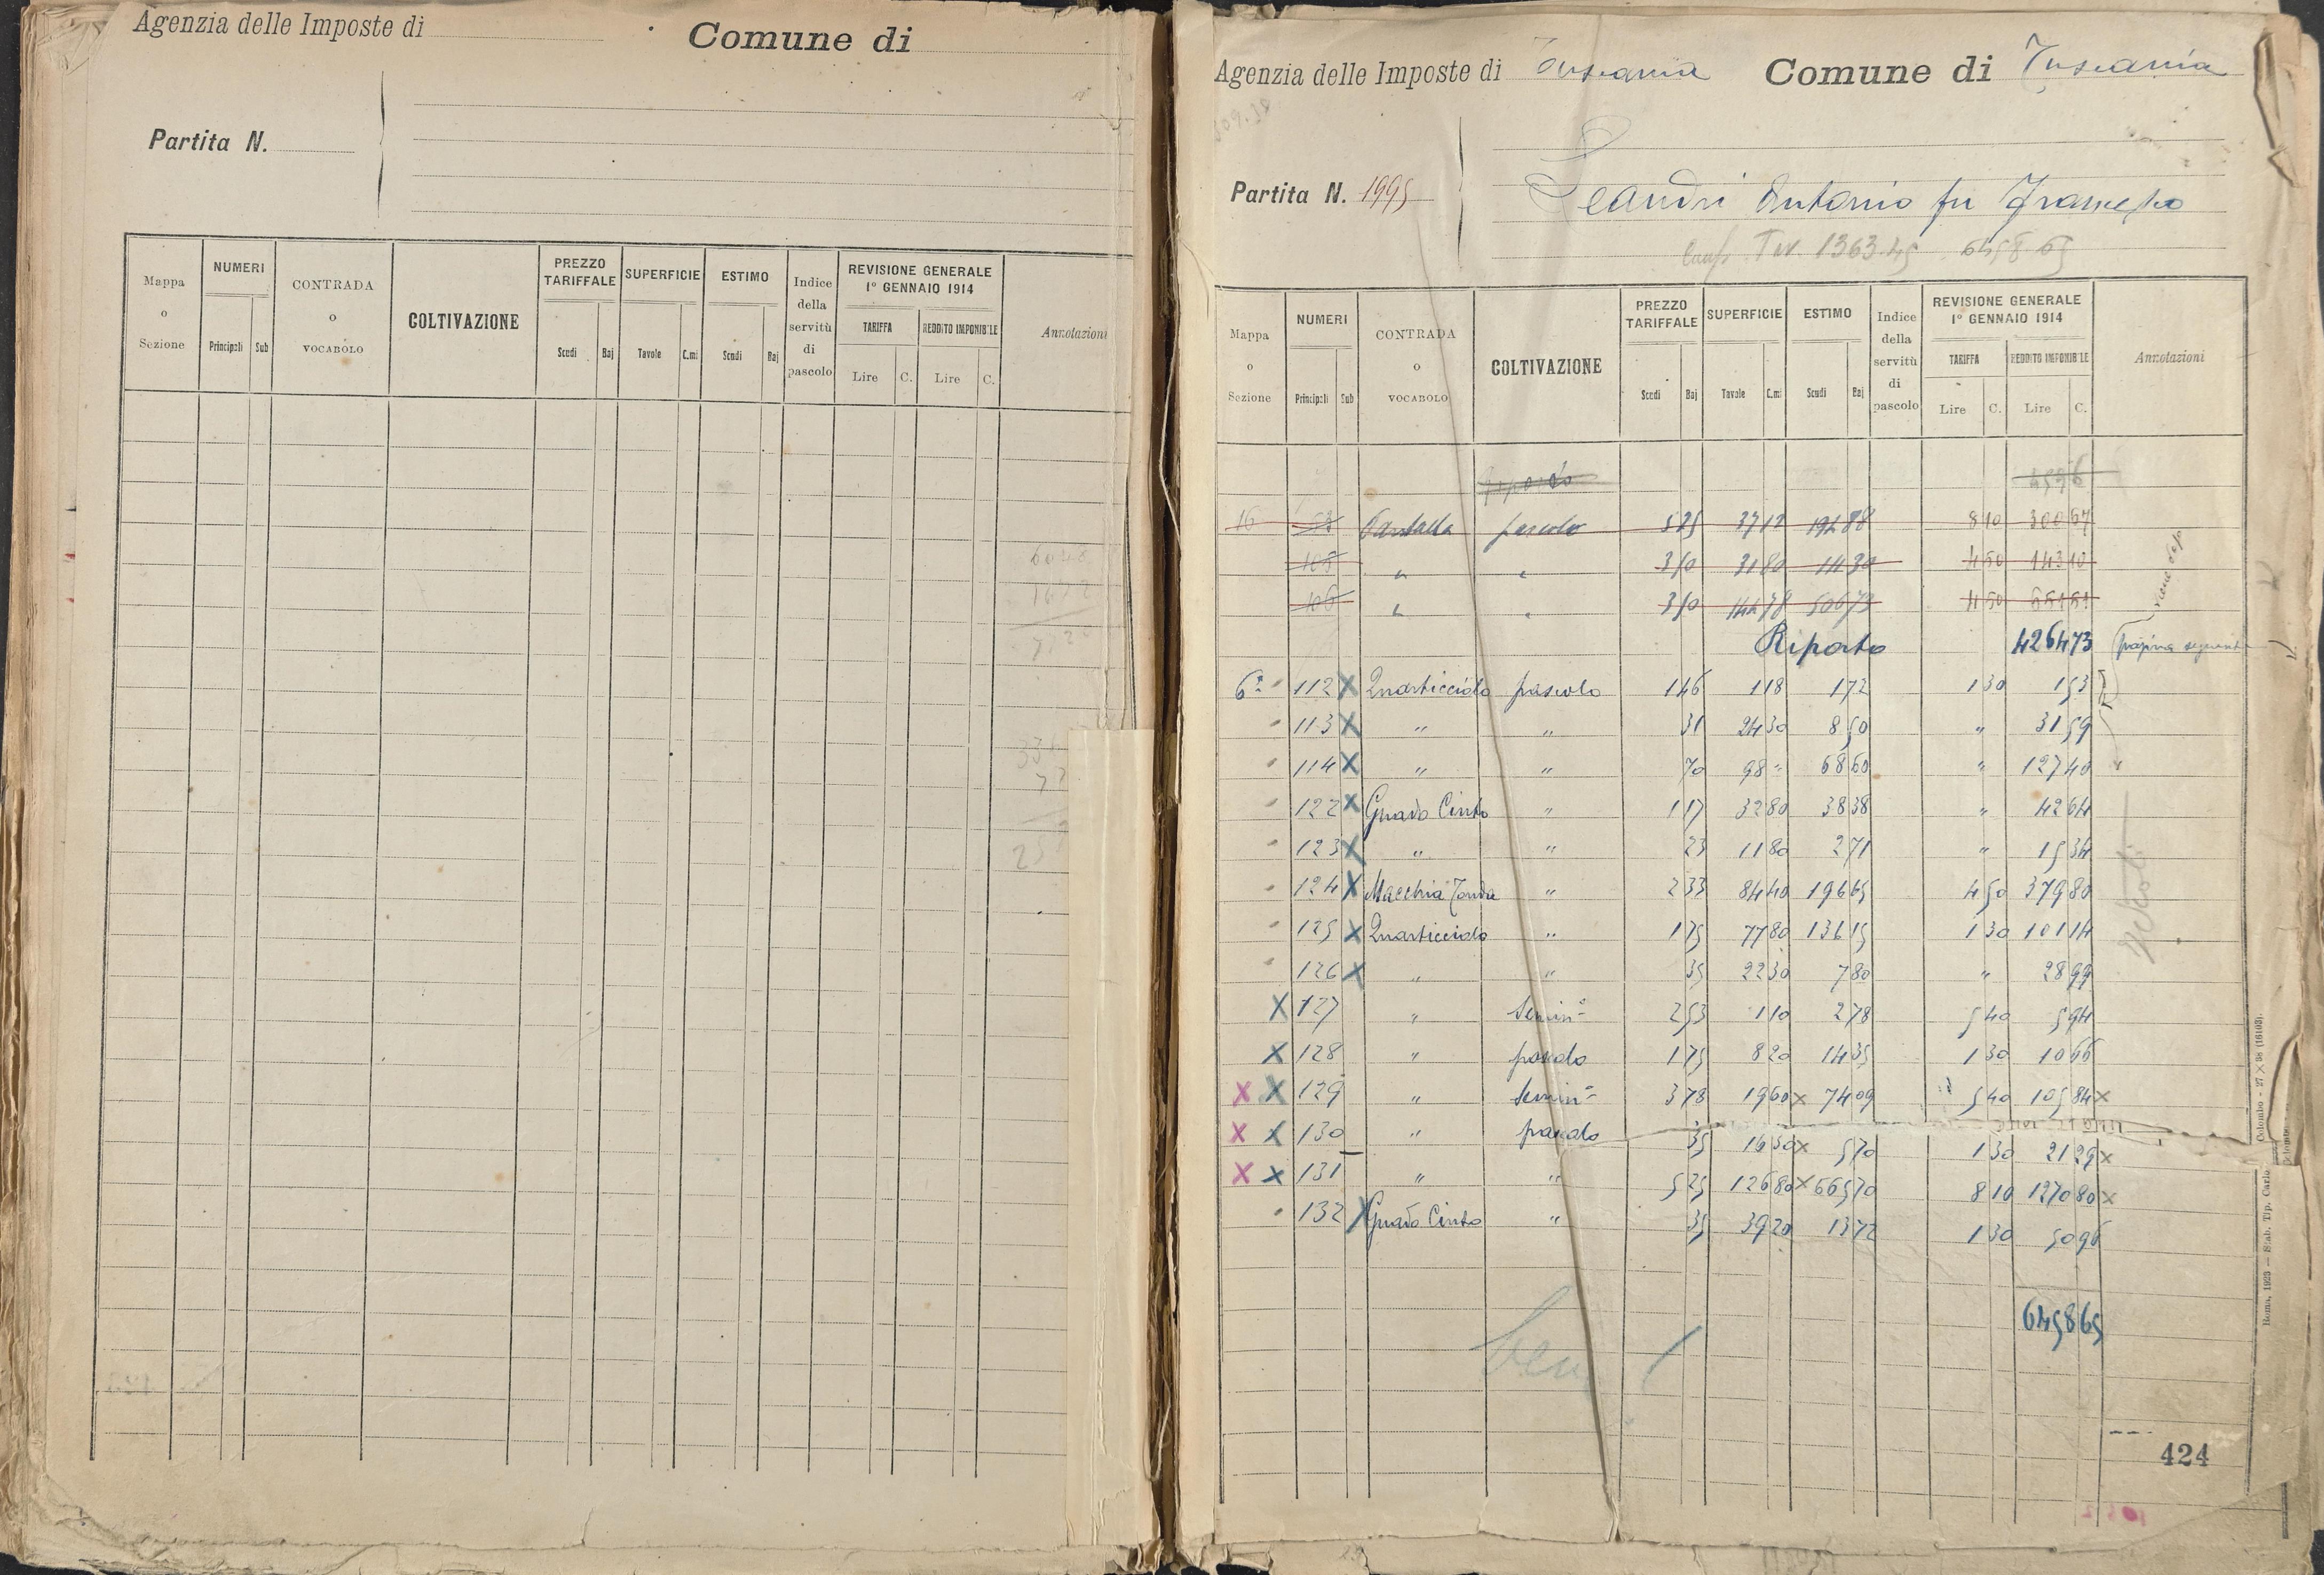 Agenzia delle Imposte di
Comune di
Partita N.
Mappa o Sezione
NUMERI
Principali Sub
CONTRADA o VOCABOLO
COLTIVAZIONE
PREZZO TARIFFALE
Scudi Baj
SUPERFICIE
Tavole C.mi
ESTIMO
Scudi Baj
Indice della servitù di pascolo
REVISIONE GENERALE 1° GENNAIO 1914
TARIFFA REDDITO IMPONIB'LE
Lire C. Lire C.
Annotazioni
Agenzia delle Imposte di Tuscania Comune di Tuscania
Partita N. 1995
Leandri Antonio fu Francesco
1363.45 6458.65
Mappa o Sezione
NUMERI
Principali Sub
CONTRADA o VOCABOLO
COLTIVAZIONE
PREZZO TARIFFALE
Scudi Baj
SUPERFICIE
Tavole C.mi
ESTIMO
Scudi Baj
Indice della servitù di pascolo
REVISIONE GENERALE 1° GENNAIO 1914
TARIFFA REDDITO IMPONIB'LE
Lire C. Lire C.
Annotazioni
Riporto
16 53 pascolo 5 25 37 12 194 88 8 10 300 67
105 " " 3 50 31 80 111 30 4 50 143 10
106 " " 3 50 144 78 506 73 4 50 651 51
Riporto 4264 73 pagina seguente
6ª 112 X Quarticciolo pascolo 1 46 1 18 1 72 1 30 1 53
113 X " " 31 24 30 8 50 " 31 59
114 X " " 70 98 " 68 60 " 127 40
122 X Guado Cinto " 1 17 32 80 38 38 " 42 64
123 X " " 23 11 80 2 71 " 15 34
124 X Macchia Tonda " 2 33 84 40 196 65 4 50 379 80
125 X Quarticciolo " 1 75 77 80 136 15 1 30 101 14
126 X " " 35 22 30 7 80 " 28 99
X 127 " Semin° 2 53 1 10 2 78 5 40 5 94
X 128 " pascolo 1 75 8 20 14 35 1 30 10 66
X X 129 " Semin° 3 78 19 60 X 74 09 5 40 105 84 X
X X 130 " pascolo 35 16 30 X 5 70 1 30 21 29 X
X X 131 " " 5 25 126 80 X 665 70 8 10 1270 80 X
132 X Guado Cinto " 35 39 20 13 72 1 30 50 96
6458 65
424
Roma, 1923 — Stab. Tip. Carlo Colombo - 27 × 38 (16103).